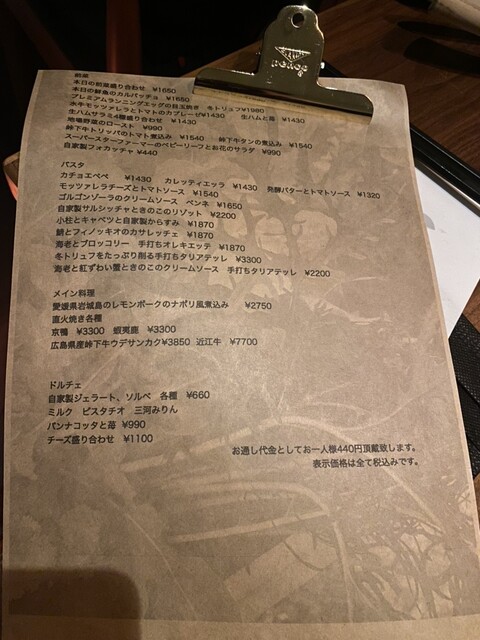 peace
前菜
本日の前菜盛り合わせ ¥1650
本日の鮮魚のカルパッチョ ¥1650
プレミアムランニングエッグの目玉焼き 冬トリュフ¥1980
水牛モッツァレラとトマトのカプレーゼ¥1430 生ハムと苺 ¥1430
生ハムサラミ4種盛り合わせ ¥1430
地場野菜のロースト ¥990
峠下牛トリッパのトマト煮込み ¥1540 峠下牛タンの煮込み ¥1540
スーパースターファーマーのベビーリーフとお花のサラダ ¥990
自家製フォカッチャ ¥440
パスタ
カチョエペペ ¥1430 カレッティエッラ ¥1430 発酵バターとトマトソース ¥1320
モッツァレラチーズとトマトソース ¥1540
ゴルゴンゾーラのクリームソース ペンネ ¥1650
自家製サルシッチャときのこのリゾット ¥2200
小柱とキャベツと自家製からすみ ¥1870
鯖とフィノッキオのカサレッチェ ¥1870
海老とブロッコリー 手打ちオレキエッテ ¥1870
冬トリュフをたっぷり削る手打ちタリアテッレ ¥3300
海老と紅ずわい蟹ときのこのクリームソース 手打ちタリアテッレ ¥2200
メイン料理
愛媛県岩城島のレモンポークのナポリ風煮込み ¥2750
直火焼き各種
京鴨 ¥3300 蝦夷鹿 ¥3300
広島県産峠下牛ウデサンカク¥3850 近江牛 ¥7700
ドルチェ
自家製ジェラート、ソルベ 各種 ¥660
ミルク ピスタチオ 三河みりん
パンナコッタと苺 ¥990
チーズ盛り合わせ ¥1100
お通し代金としてお一人様440円頂戴致します。
表示価格は全て税込みです。